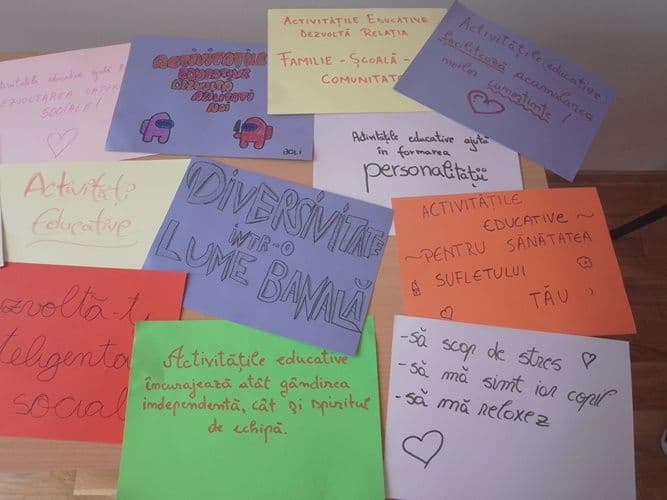 educative ajută
DEZVOLTAREA
SOCIALE!
ACTIVITĂȚILE
EDUCATIVE
DEZVOLTĂ
ABILITĂȚI
NOI
ACTIVITĂȚILE EDUCATIVE
DEZVOLTĂ RELAȚIA
FAMILIE - ȘCOALĂ -
COMUNITATE
Activitățile Educative
facilitează acumularea
noilor cunoștințe!
educative ajută
în formarea
personalității
Activități
Educative
DIVERSIVITATE
ÎNTR-O
LUME BANALĂ
ACTIVITĂȚILE
EDUCATIVE ~
~ PENTRU SĂNĂTATEA
SUFLETULUI
TĂU :)
social
Activitățile educative
încurajează atât gândirea
independentă, cât și spiritul
de echipă.
-să scap de stres
-să mă simt iar copil
-să mă relaxez